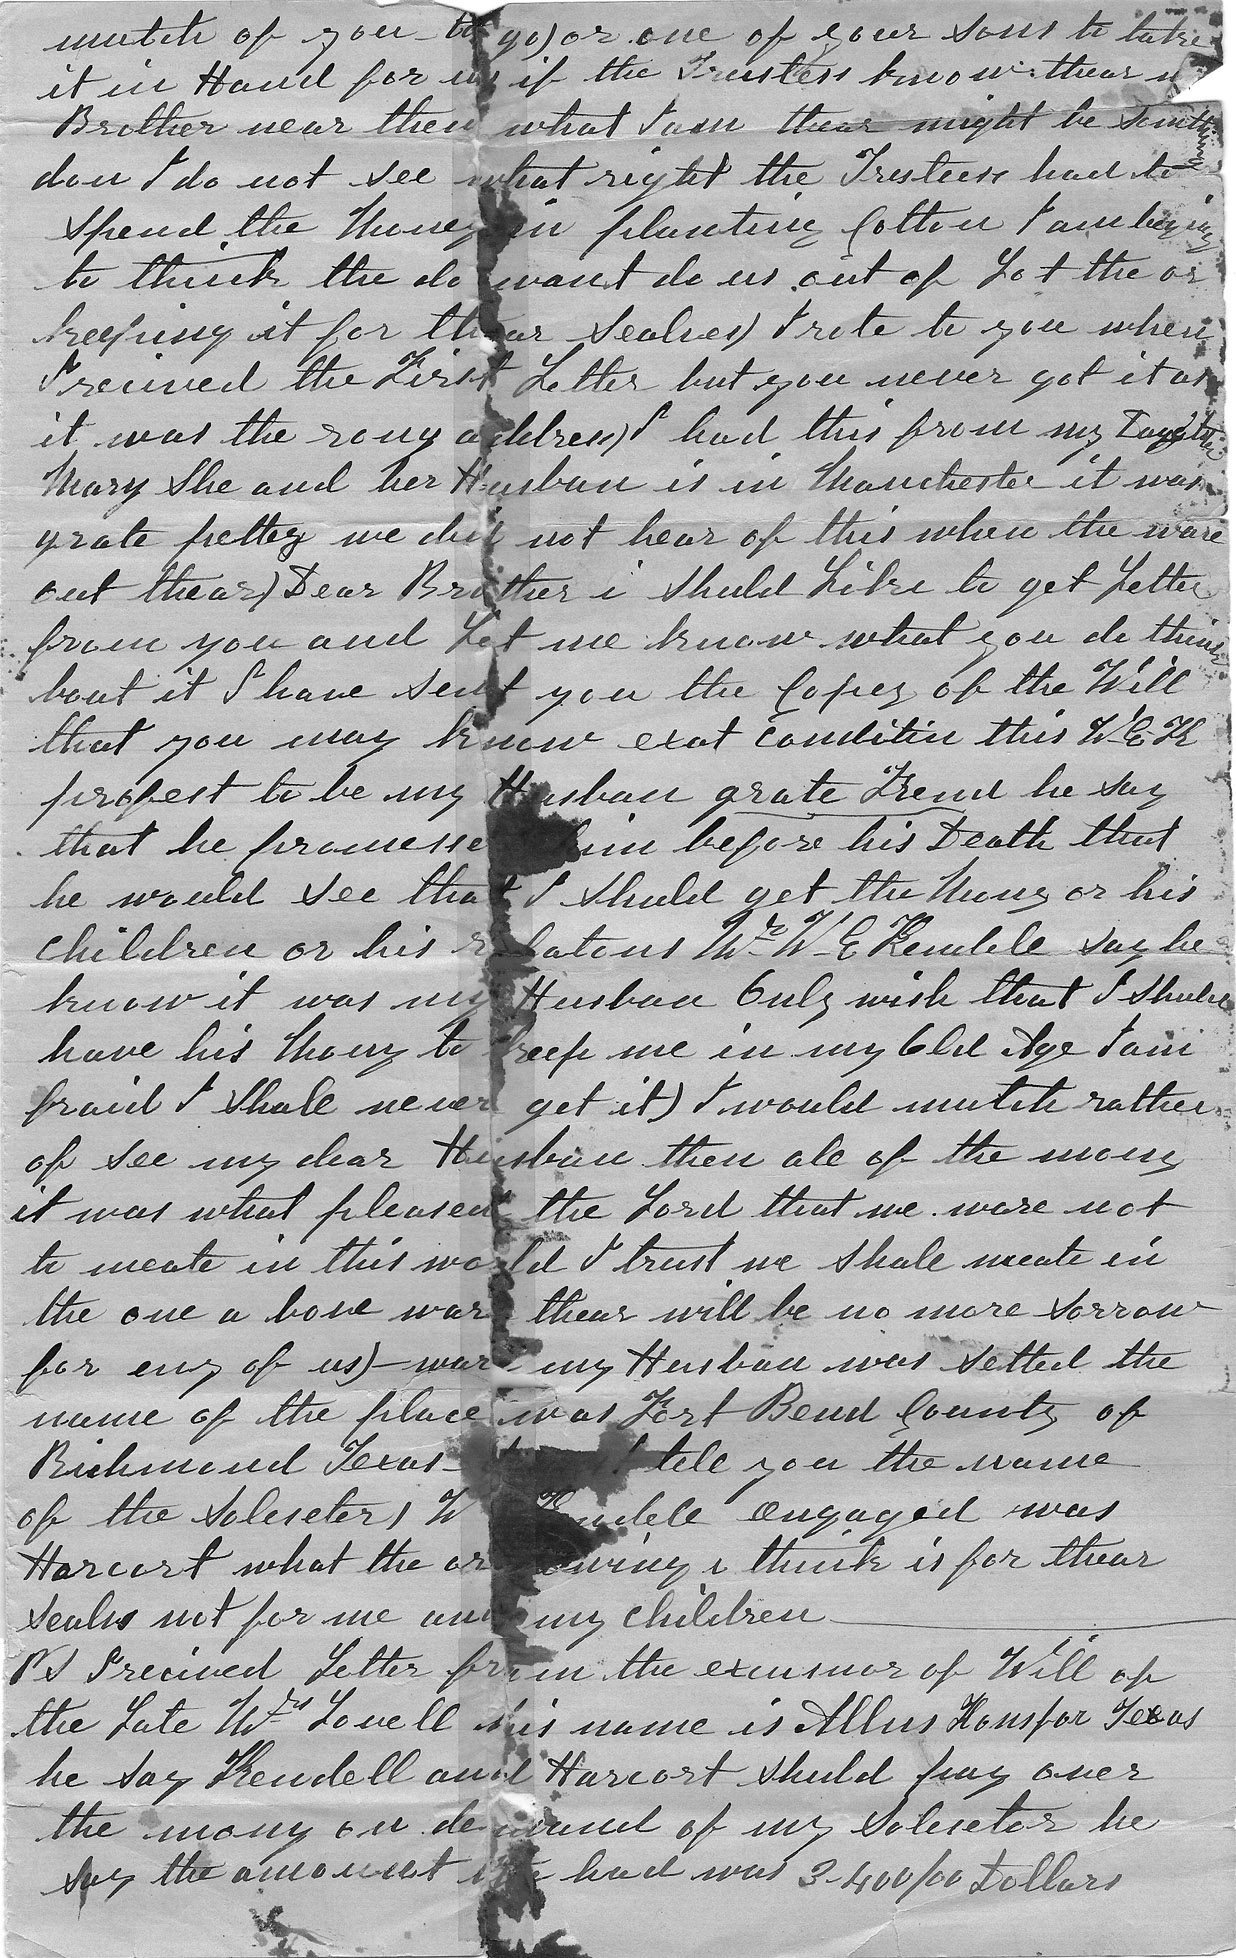 mutch of you to go) or one of your sons to take
it in Hand for us if the Trustess know thear
Brother near them what I am thear might be
don I do not see what right the Trestess had to
spend the Money in planting Cotton I am
to think the do want do us out of Lot the or
keeping it for thear sealves) I rote to you when
I recived the First Letter but you never got it as
it was the rong address) I had this from my
Mary She and her Husban is in Manchester it was
grate pettey we did not hear of this when the ware
out thear) Dear Brother i shuld Like to get Letter
from you and Let me know what you do think
bout it I have sent you the Copey of the Will
that you may know exat conditin this W E K
profest to be my Husban grate Frend he say
that he promesse him before his Death that
he would see that I shuld get the Mony or his
children or his relatons Mr W E Kendele say he
know it was my Husban Only wish that I shuld
have his Mony to keep me in my Old Age I am
fraid I shale never get it) I would mutch rather
of see my dear Husban then ale of the mony
it was what pleased the Lord that we ware not
to meate in this world I trust we shale meate in
the one a bove ware thear will be no more sorrow
for eny of us) ware my Husban was setted the
name of the place was Fort Bend County of
Richmond Texas tele you the name
of the Soleseter) W Kendele engaged was
Harcort what the or i think is for thear
sealvs not for me and my children
PS I recived Letter from the excusnor of Will of
the Late Mrs Lovell his name is Allus Texas
he say Kendell and Harcort shuld pay over
the mony on demand of my Soleseter he
say the amount had was 3-400/00 Dollars